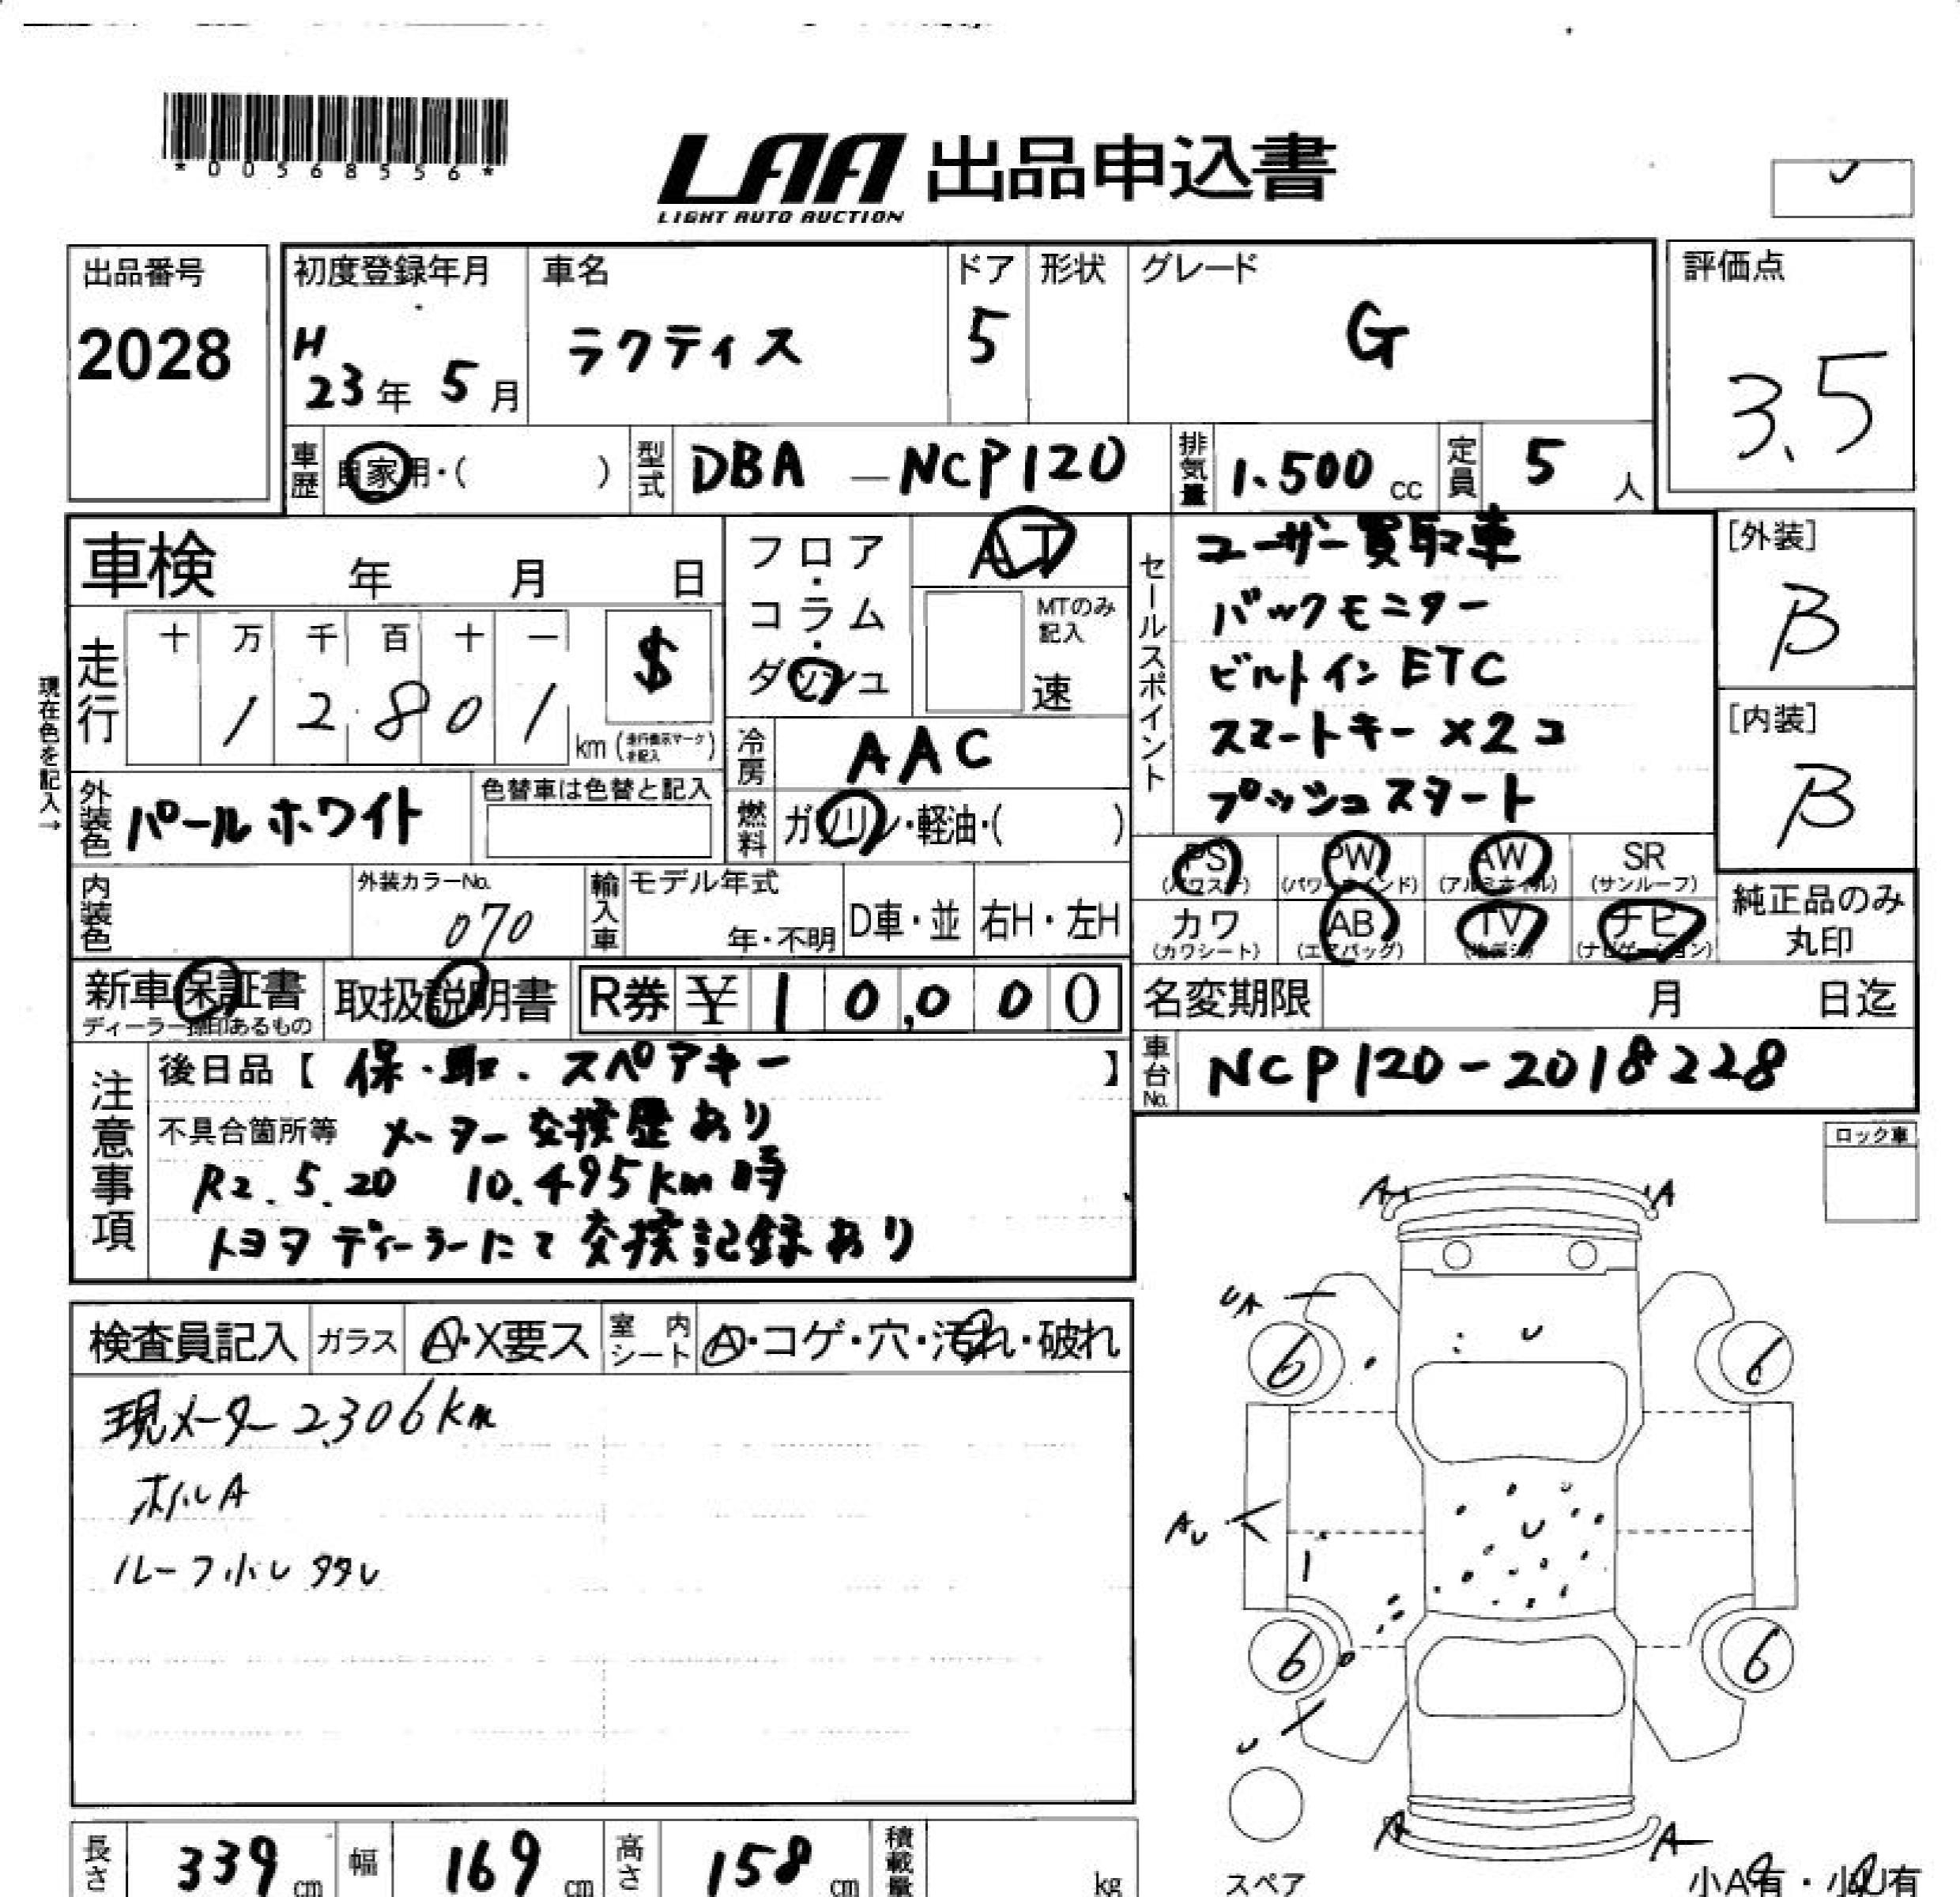 *00568556*
LAA 出品申込書
LIGHT AUTO AUCTION
出品番号
2028
初度登録年月
H
23年 5月
車名
ラクティス
ドア
5
形状
グレード
G
評価点
3.5
車歴
自家用・( )
型式
DBA - NCP120
排気量
1.500 cc
定員
5 人
車検 年 月 日
フロア・コラム・ダッシュ
AT
MTのみ記入
速
セールスポイント
ユーザー買取車
バックモニター
ビルトインETC
スマートキー×2コ
プッシュスタート
[外装]
B
[内装]
B
現在色を記入→
走行
十 万 千 百 十 一
1 2 8 0 1
km (走行表示マークを記入)
$
冷房
AAC
外装色
パールホワイト
色替車は色替と記入
燃料
ガソリン・軽油・( )
PS
(パワステ)
PW
(パワーウインド)
AW
(アルミホイル)
SR
(サンルーフ)
カワ
(カワシート)
AB
(エアバッグ)
TV
(地デジ)
ナビ
(ナビゲーション)
純正品のみ
丸印
内装色
外装カラーNo.
070
輸入車
モデル年式
年・不明
D車・並
右H・左H
新車保証書
ディーラー捺印あるもの
取扱説明書
R券 ¥ 10,000
名変期限 月 日迄
車台No.
NCP120-2018228
注意事項
後日品【 保・取.スペアキー 】
不具合箇所等 メーター交換歴あり
R2.5.20 10.495km時
トヨタディーラーにて交換記録あり
ロック車
検査員記入
ガラス
A・X要ス
室内シート
A・コゲ・穴・汚れ・破れ
現メーター2,306km
ホイルA
A
A
UA
U
6
6
AU
U
6
6
U
A
A
スペア
小A有・小U有
長さ
339 cm
幅
169 cm
高さ
158 cm
積載量
kg